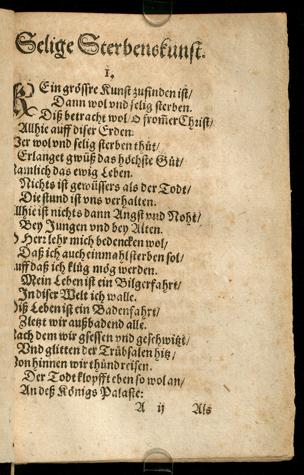 Selige Sterbenskunst.
1.
KEin grössre Kunst zufinden ist/
Dann wol vnd selig sterben.
Diß betracht wol/ O from̃er Christ/
Allhie auff diser Erden.
Wer wol vnd selig sterben thüt/
Erlanget gwüß das höchste Güt/
Namlich das ewig Leben.
Nichts ist gewüssers als der Todt/
Die stund ist vns verhalten.
Allhie ist nichts dann Angst vnd Noht/
Bey Jungen vnd bey Alten.
O Herr lehr mich bedencken wol/
Daß ich auch einmahl sterben sol/
Auff daß ich klüg mög werden.
Mein Leben ist ein Bilgerfahrt/
In diser Welt ich walle.
Diß Leben ist ein Badenfahrt/
Zletzt wir außbadend alle.
Nach dem wir gsessen vnd geschwitzt/
Vnd glitten der Trübsalen hitz/
Von hinnen wir thünd reisen.
Der Todt klopfft eben so wol an/
An deß Königs Palaste:
A ij Als